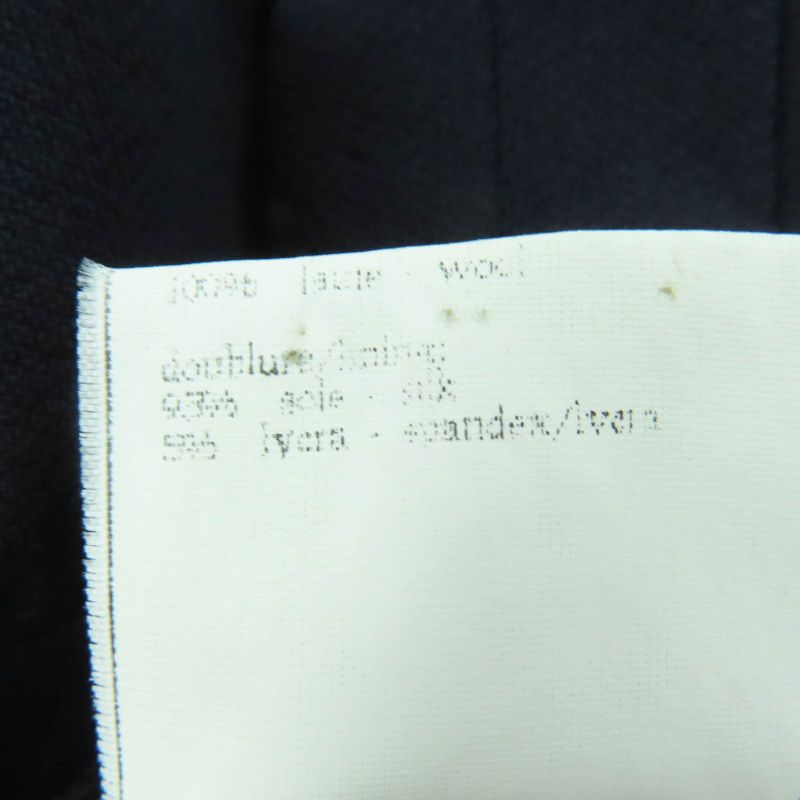 100% laine - wool
doublure/lining
soie - silk
5% lycra - spandex/lycra